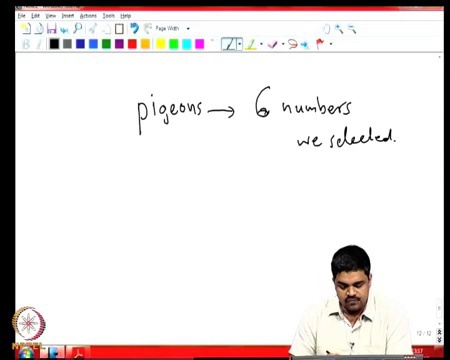 File Edit View Insert Actions Tools Help
Page Width
B
pigeons → 6 numbers
we selected.
12 / 12
NPTEL